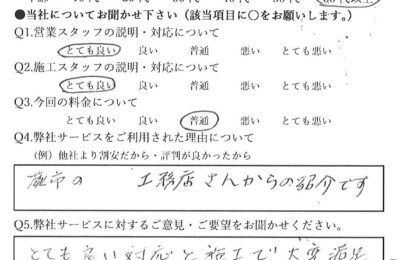 ●当社についてお聞かせ下さい（該当項目に〇をお願いします。）
Q1.営業スタッフの説明・対応について
とても良い 良い 普通 悪い とても悪い
Q2.施工スタッフの説明・対応について
とても良い 良い 普通 悪い とても悪い
Q3.今回の料金について
とても良い 良い 普通 悪い とても悪い
Q4.弊社サービスをご利用された理由について
（例）他社より割安だから・評判が良かったから
蕨市の 工務店さんからの紹介です
Q5.弊社サービスに対するご意見・ご要望をお聞かせください。
とても良い対応と施工で大変満足